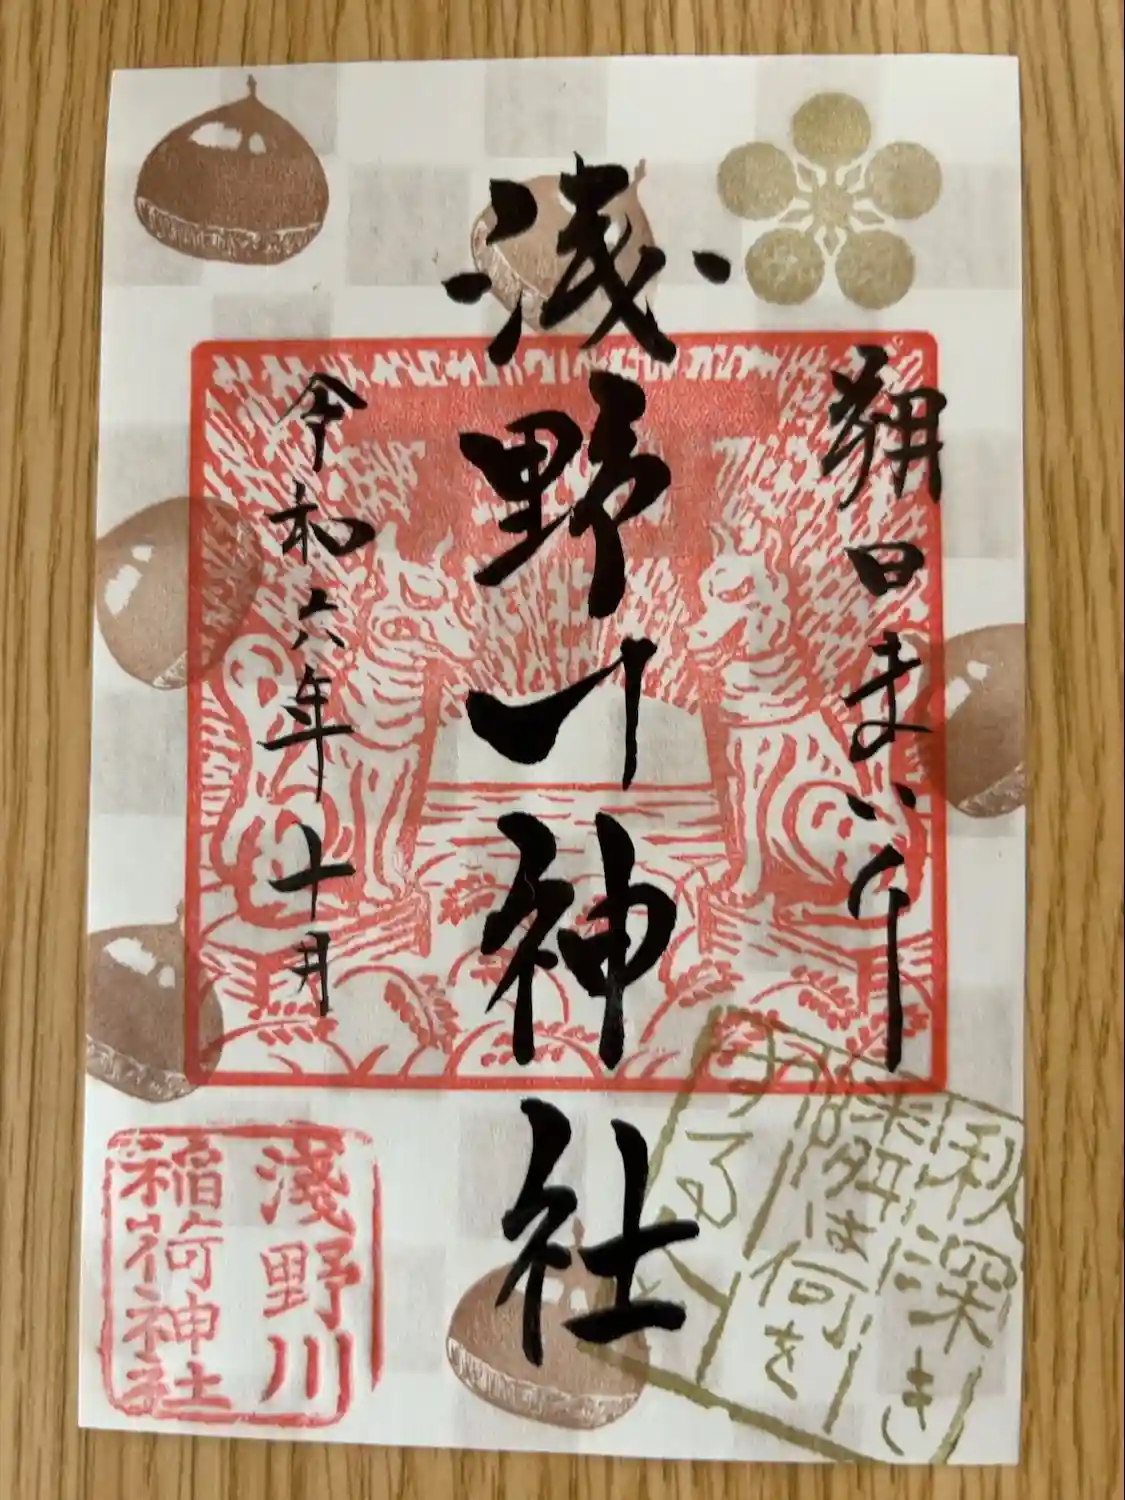 朔日まいり
浅野川神社
令和六年十月
秋深き
隣は何を
する人
淺野川
稲荷神社